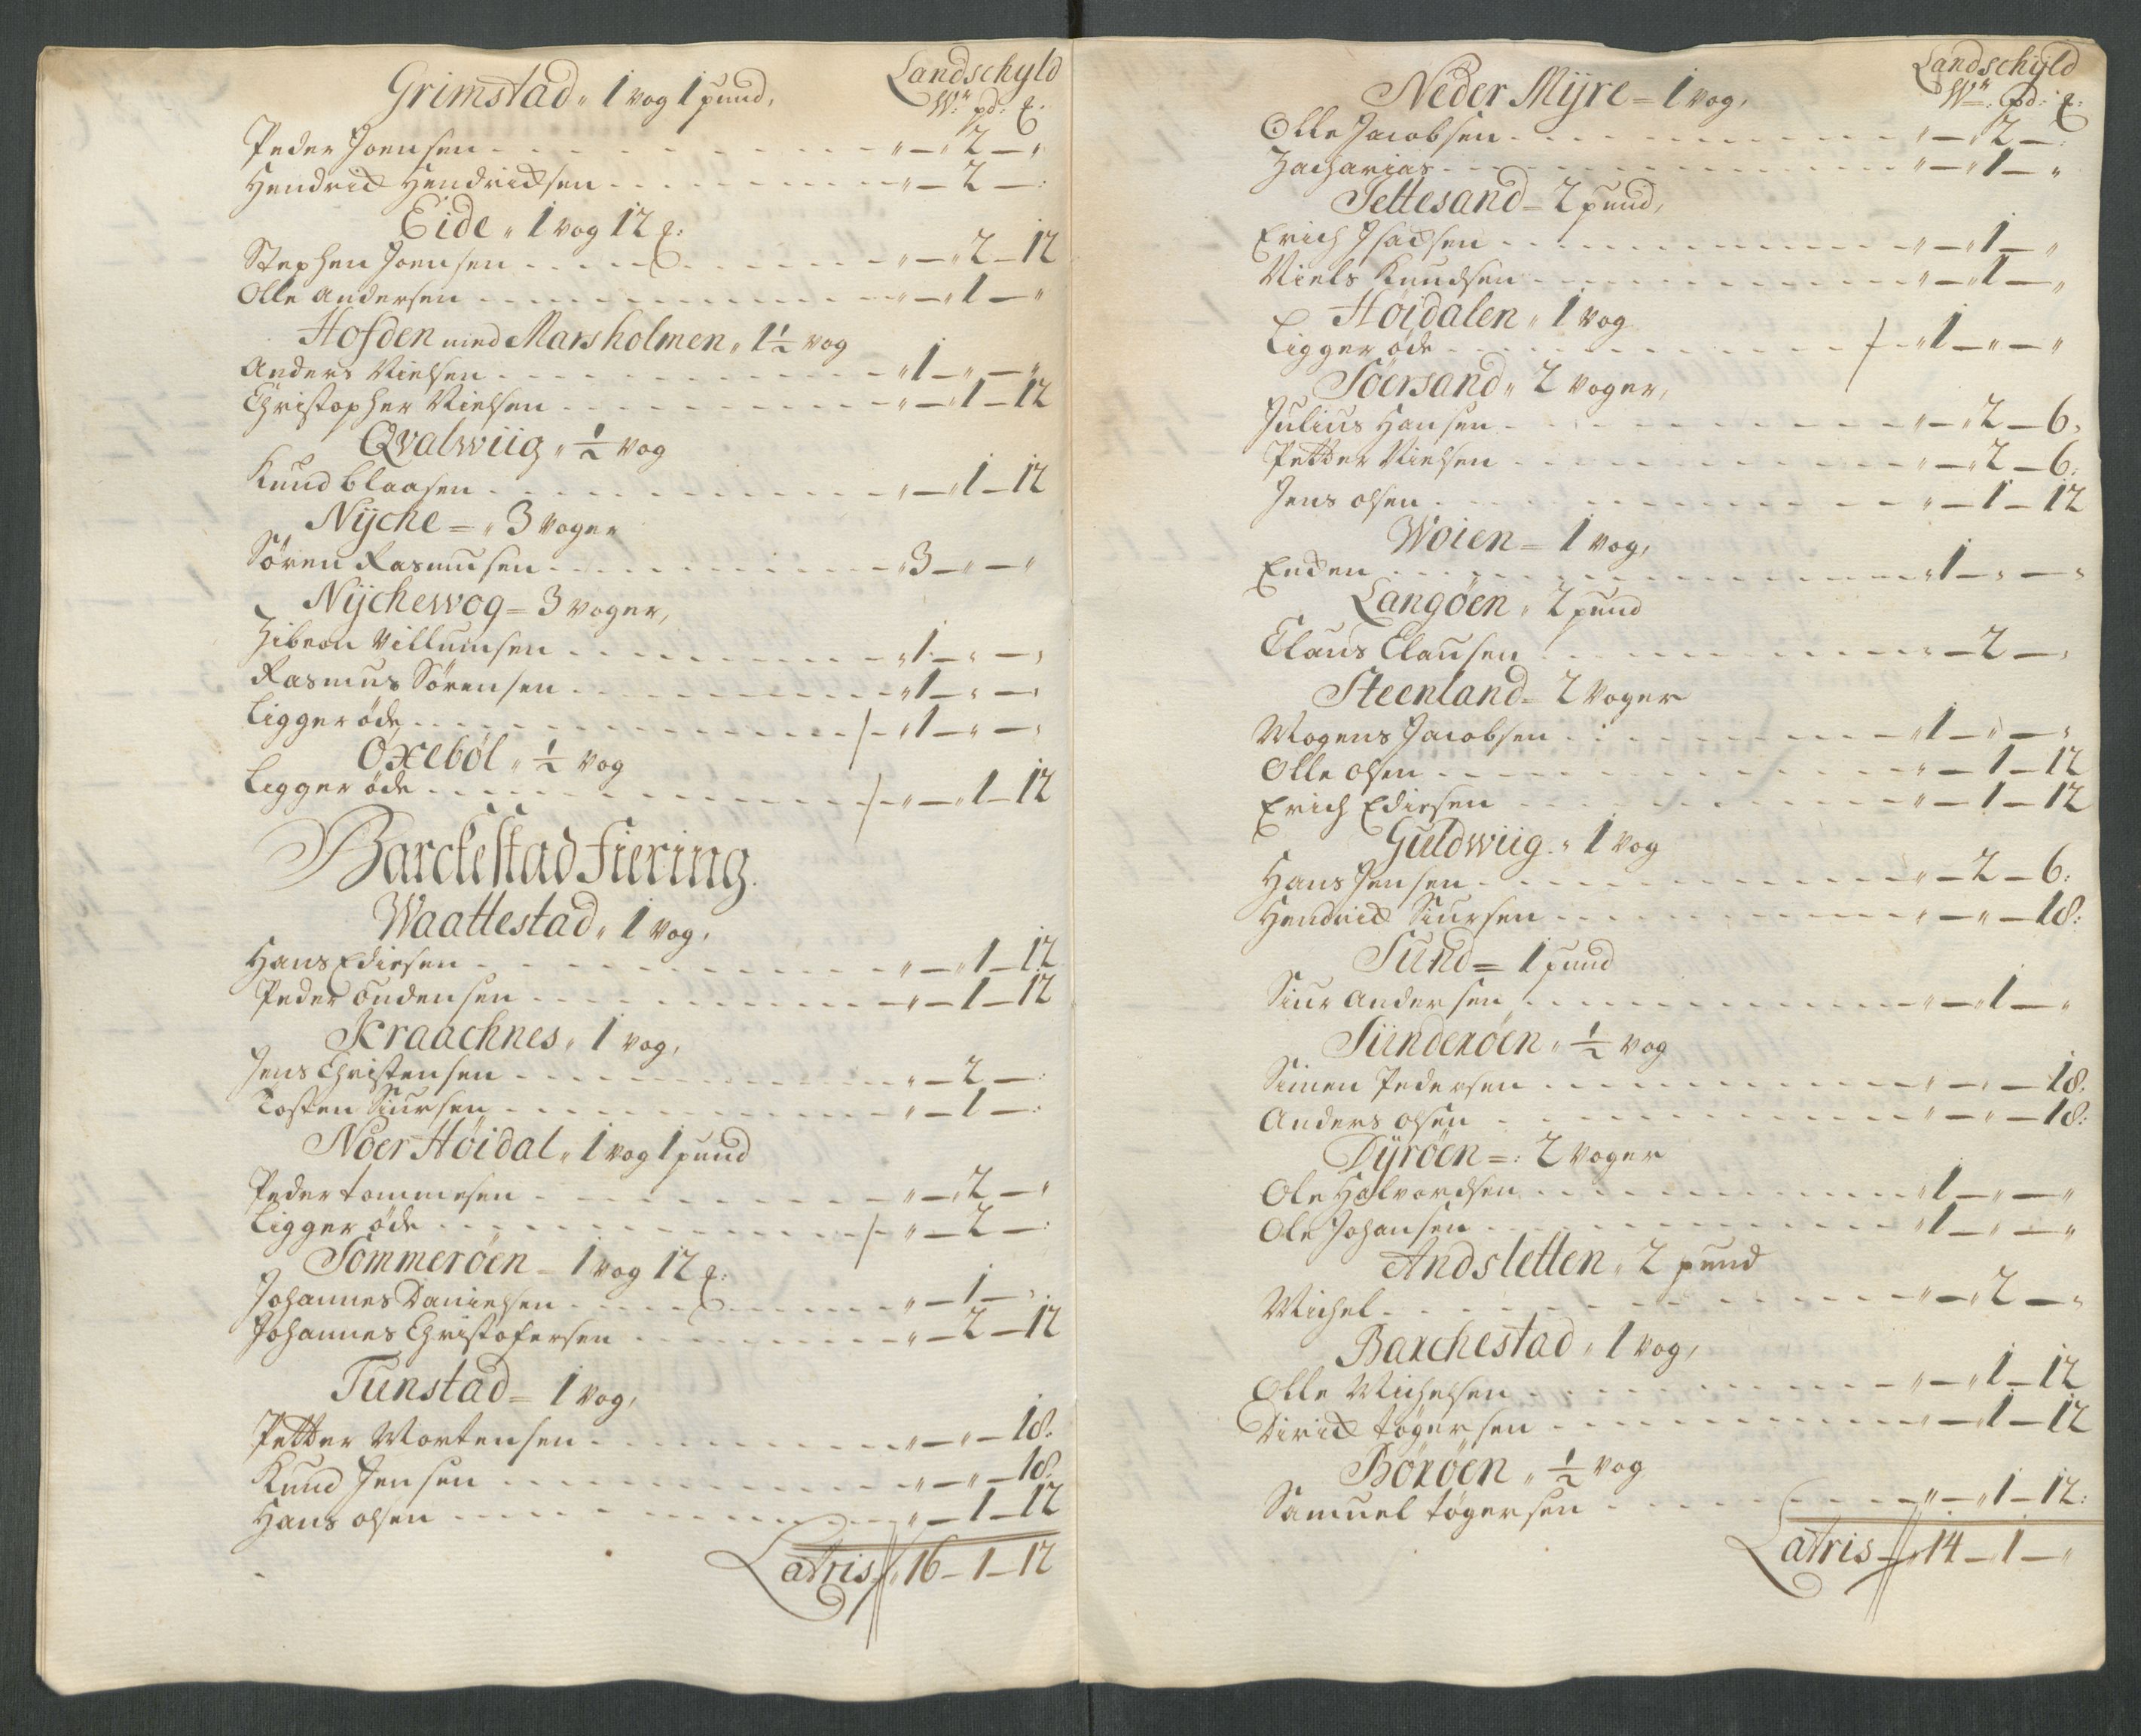 Landschyld
Grimstad „ 1 vog 1 pund,
Wr: pd: ℔:
Peder Joensen - - - „ — „ 2 — „
Hendrick Hendricksen - - - „ — 2 — :
Eide „ 1 vog 12 ℔:
Stephen Joensen - - - „ — „ 2 — 12
Olle Andersen - - - „ — „ 1 — „
Hofden med Marsholmen „ 1½ vog
Anders Nielsen - - - „ 1 — „ — „
Christopher Nielsen - - - „ — „ 1 — 12
Qvalwiig „ ½ vog
Knud Claasen - - - „ — „ 1 — 12
Nÿche = „ 3 voger
Sören Rasmusen - - - „ 3 — „ — „
Nÿchewog = 3 voger,
Zibron Villumsen - - - „ 1 — „ — „
Rasmus Sörensen - - - „ 1 — „ — „
Ligger öde - - - / - „ 1 — „ — „
Oxeböl „ ½ vog
Ligger öde - - - / - „ — „ 1 — 12
Barckestad Fiering.
Waattestad „ 1 vog,
Hans Ediesen - - - „ — „ 1 — 12
Peder Endensen - - - „ — 1 — 12
Kraachnes „ 1 vog,
Jens Christensen - - - „ — 2 — :
Tosten Siursen - - - „ — 1 — :
Noer Höidal „ 1 vog 1 pund
Peder tommesen - - - „ — „ 2 — „
Ligger öde - - - / - „ — 2 — :
Sommeröen = 1 vog 12 ℔:
Johannes Danielsen - - - „ — 1 — „
Johannes Christofersen - - - „ — 2 — 12
Tunstad = 1 vog,
Petter Mortensen - - - „ — „ — 18:
Knud Jensen - - - „ — „ — 18:
Hans olsen - - - „ — 1 — 12
Latris „ 16 — 1 — 12
Landschyld
Neder Mÿre = 1 vog,
Wr: pd: ℔:
Olle Jacobsen - - - „ — „ 2 — :
Zacharias - - - „ — „ 1 — „
Tettesand = 2 pund,
Erich Isacsen - - - „ — „ 1 — „
Niels Knudsen - - - „ — „ 1 — „
Höidalen „ 1 vog
Ligger öde - - - / - „ 1 — „ — „
Söersand „ 2 voger,
Julius Hansen - - - „ — „ 2 — 6,
Petter Nielsen - - - „ — „ 2 — 6:
Jens olsen - - - „ — 1 — 12
Woien = 1 vog,
Enden - - - „ 1 — „ — „
Langöen „ 2 pund
Claus Clausen - - - „ — 2 — „
Steenland = 2 voger
Mogens Jacobsen - - - „ 1 — „ — „
Olle olsen - - - „ — 1 — 12
Erich Ediesen - - - „ — 1 — 12
Guldwiig „ 1 vog
Hans Jensen - - - „ — 2 — 6:
Hendrick Siursen - - - „ — „ — 18:
Sund = 1 pund
Siur Andersen - - - „ — „ 1 — „
Sünderöen „ ½ vog
Simen Pedersen - - - „ — „ — 18:
Anders olsen - - - „ — „ — 18:
Dÿröen =: 2 voger
Ole Halvordsen - - - „ 1 — „ — „
Ole Johansen - - - „ 1 — „ — „
Andsletten „ 2 pund
Michel - - - „ — „ 2 — „
Barchestad „ 1 vog,
Olle Michelsen - - - „ — „ 1 — 12
Dirick tögersen - - - „ — „ 1 — 12
Böröen „ ½ vog
Samuel tögersen - - - „ — „ 1 — 12:
Latris „ 14 — 1 — „